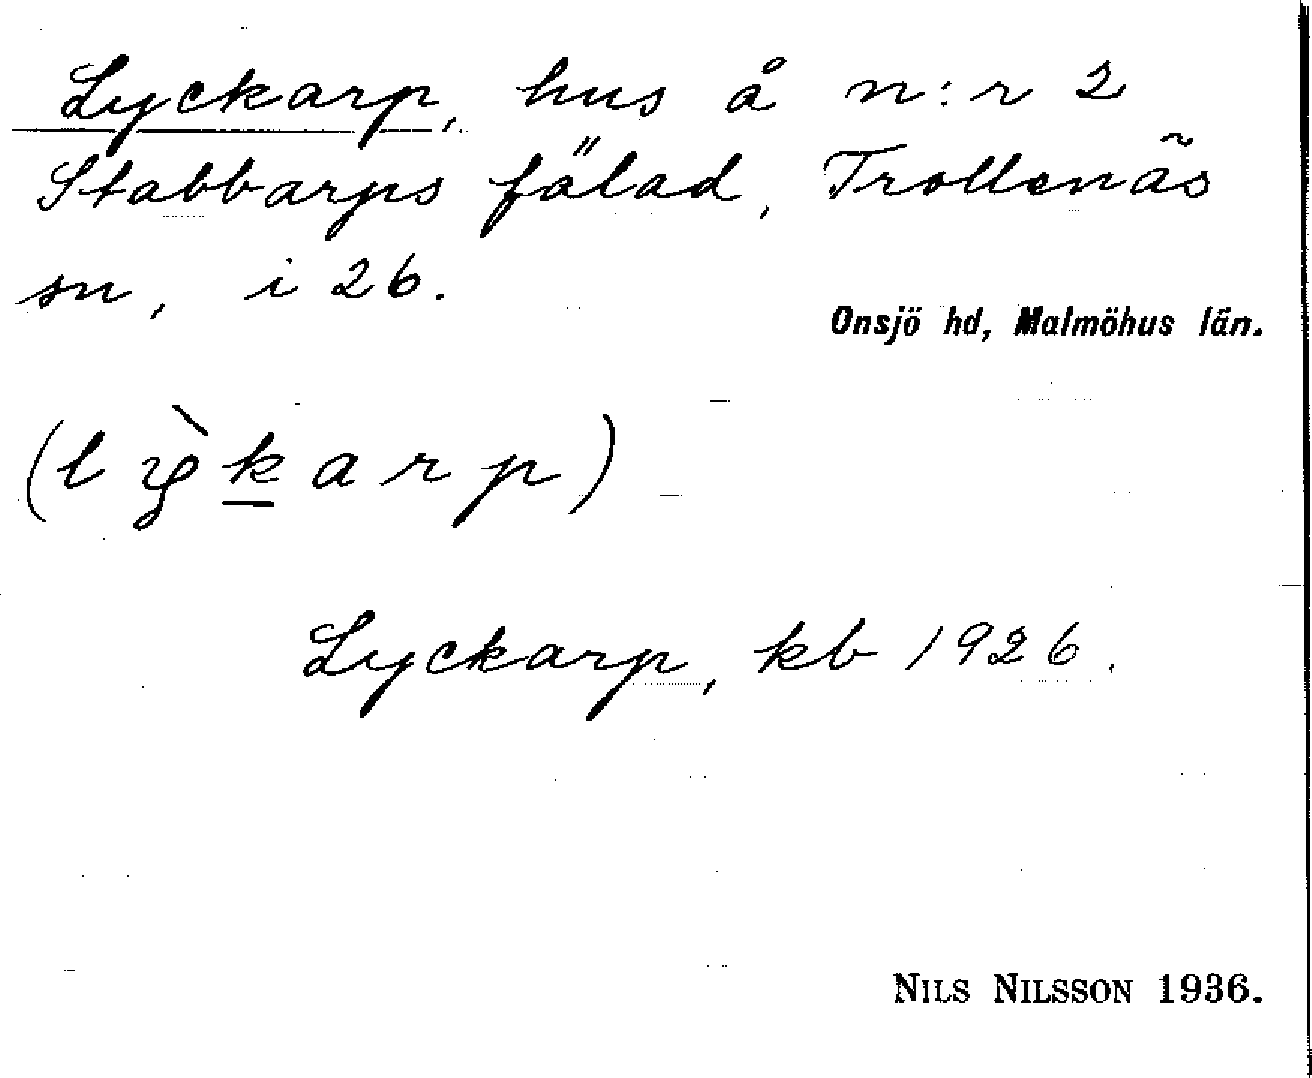 Lyckarp, hus å n:r 2
Stabbarps fälad, Trollenäs
sn, i 26.
Onsjö hd, Malmöhus län.
(lỳkarp)
Lyckarp, kb 1926.
NILS NILSSON 1936.